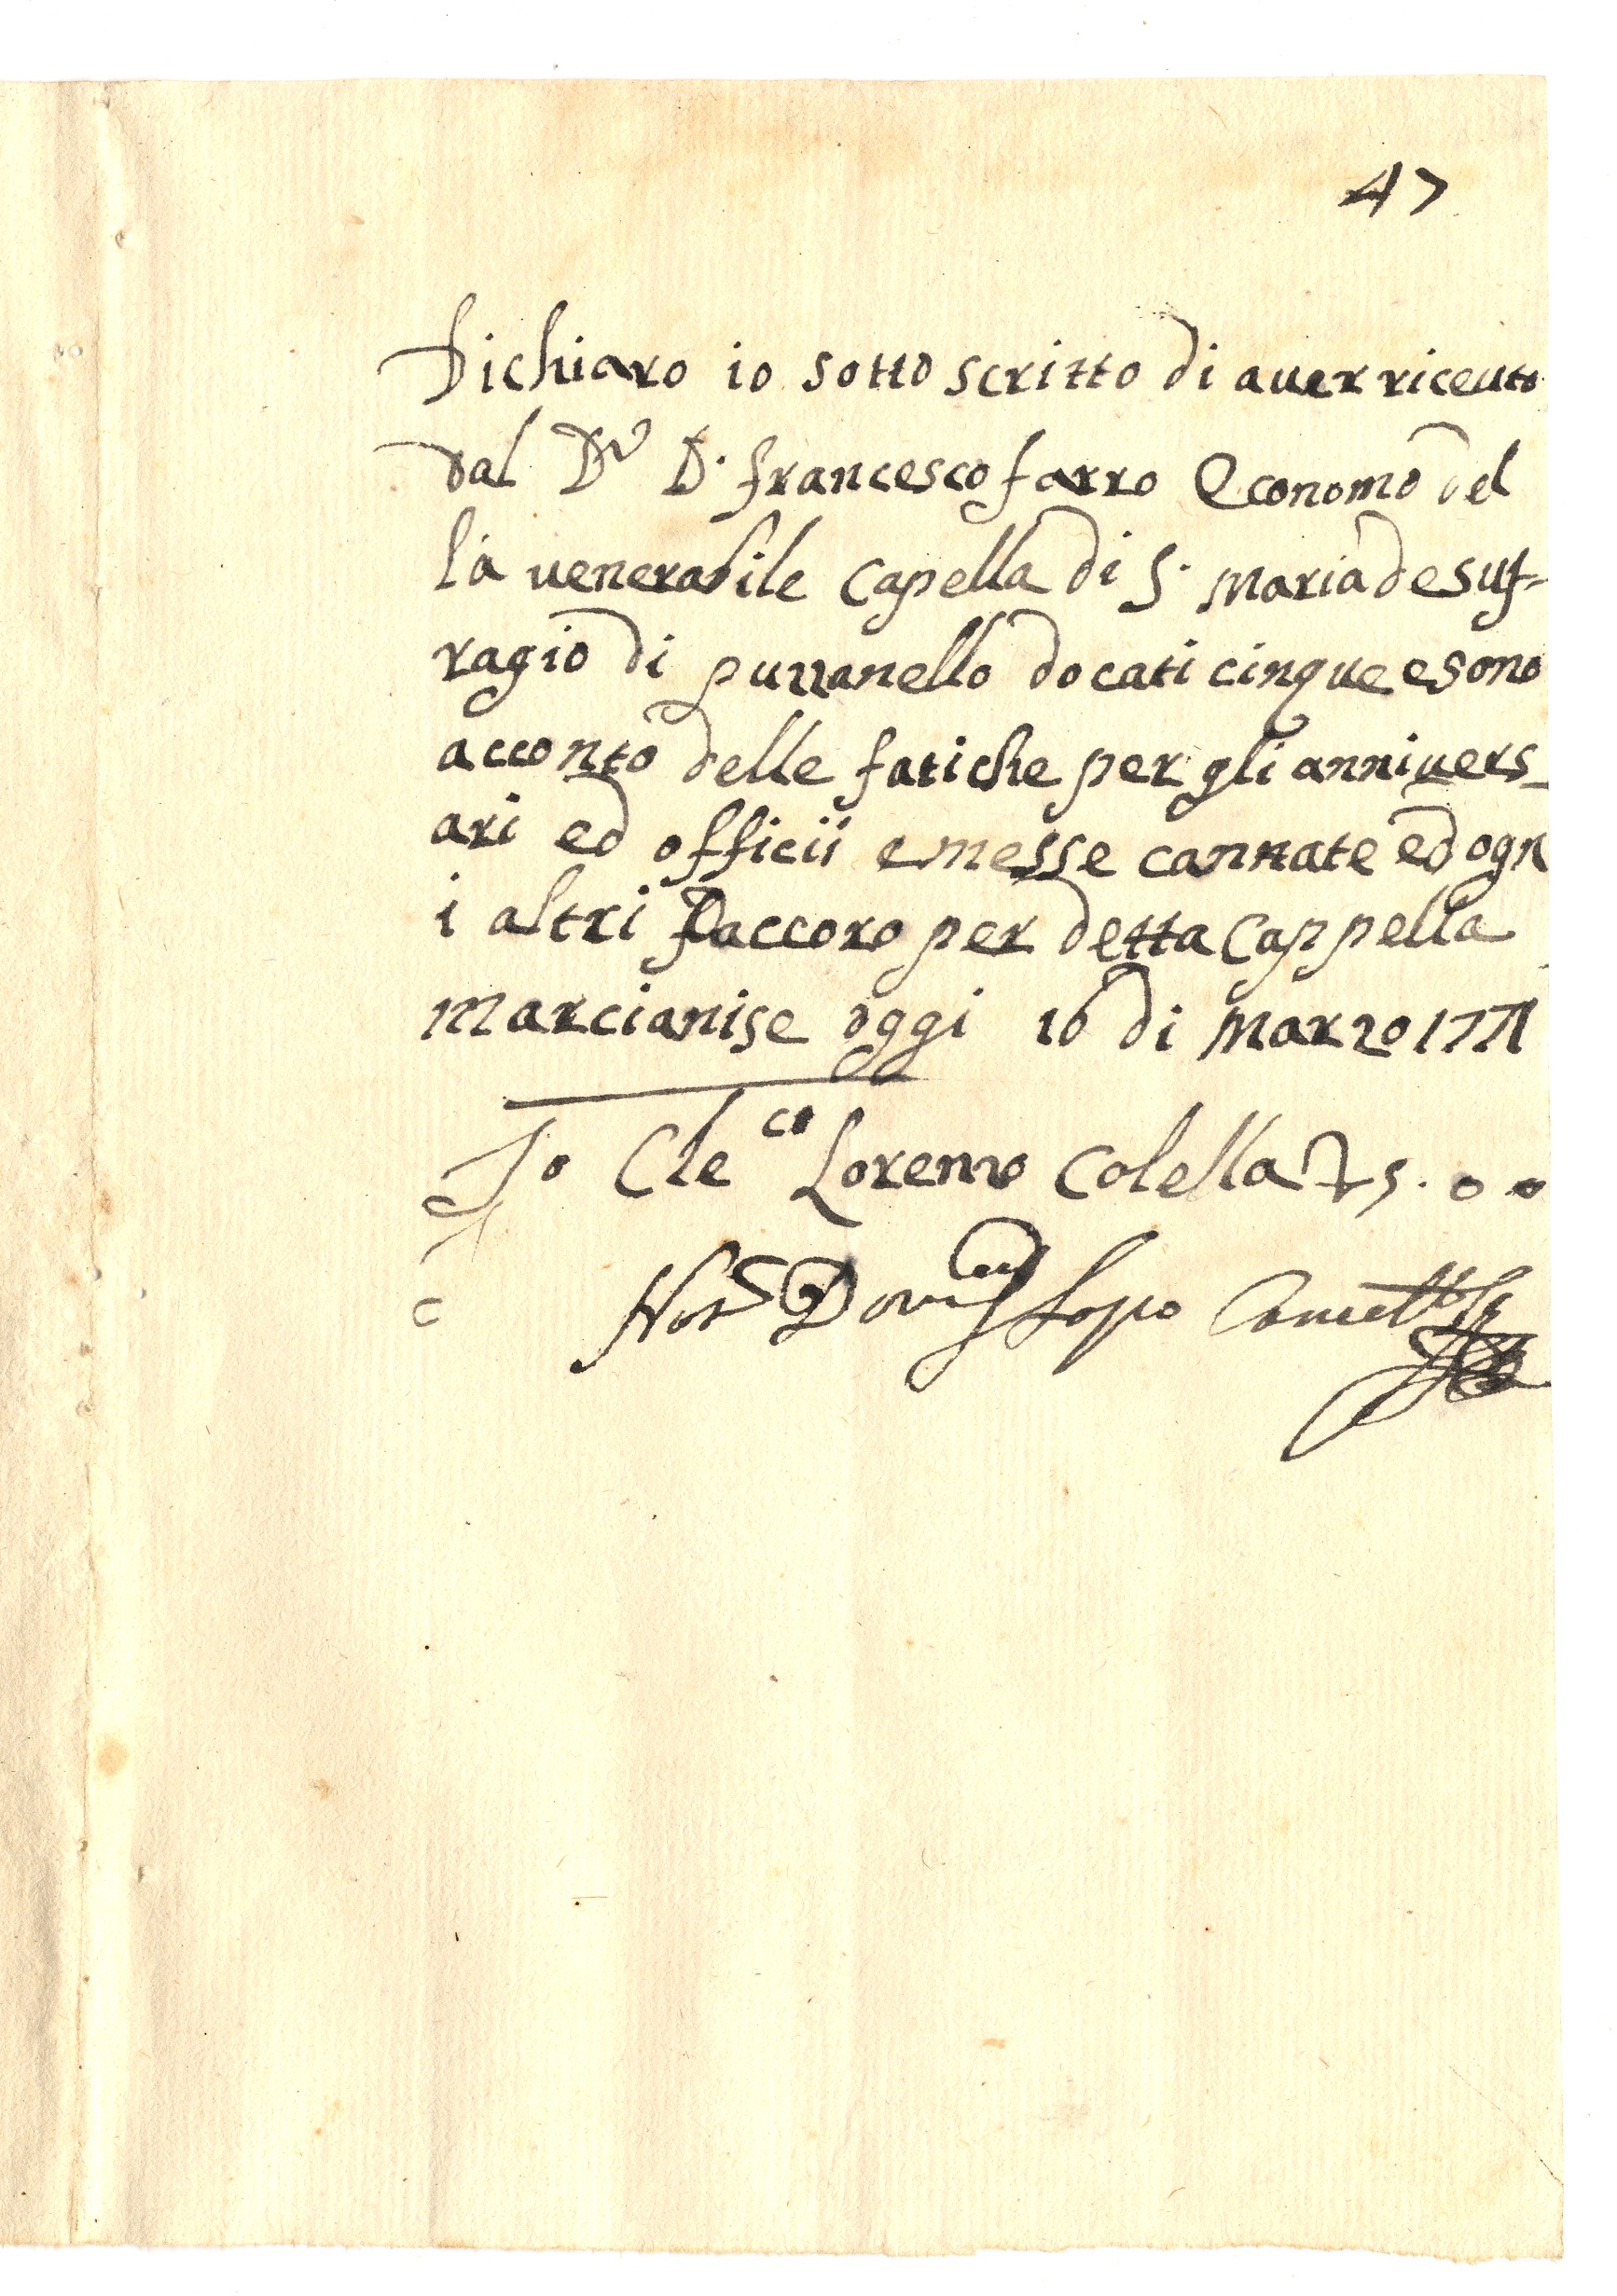 47
Dichiaro io sotto scritto di auer riceuto
dal Dr D. francesco farro Economo del
la uenerabile Capella di S. Maria de suf-
ragio di puzzanello docati cinque e sono
acconto delle fatiche per gli anniuers_
ari ed officii e messe cannate ed ogn
i altri per detta Cappella
Marcianise oggi 16 di Marzo 1771
Io Cle co Lorenzo Colella 5. o o
Lopo